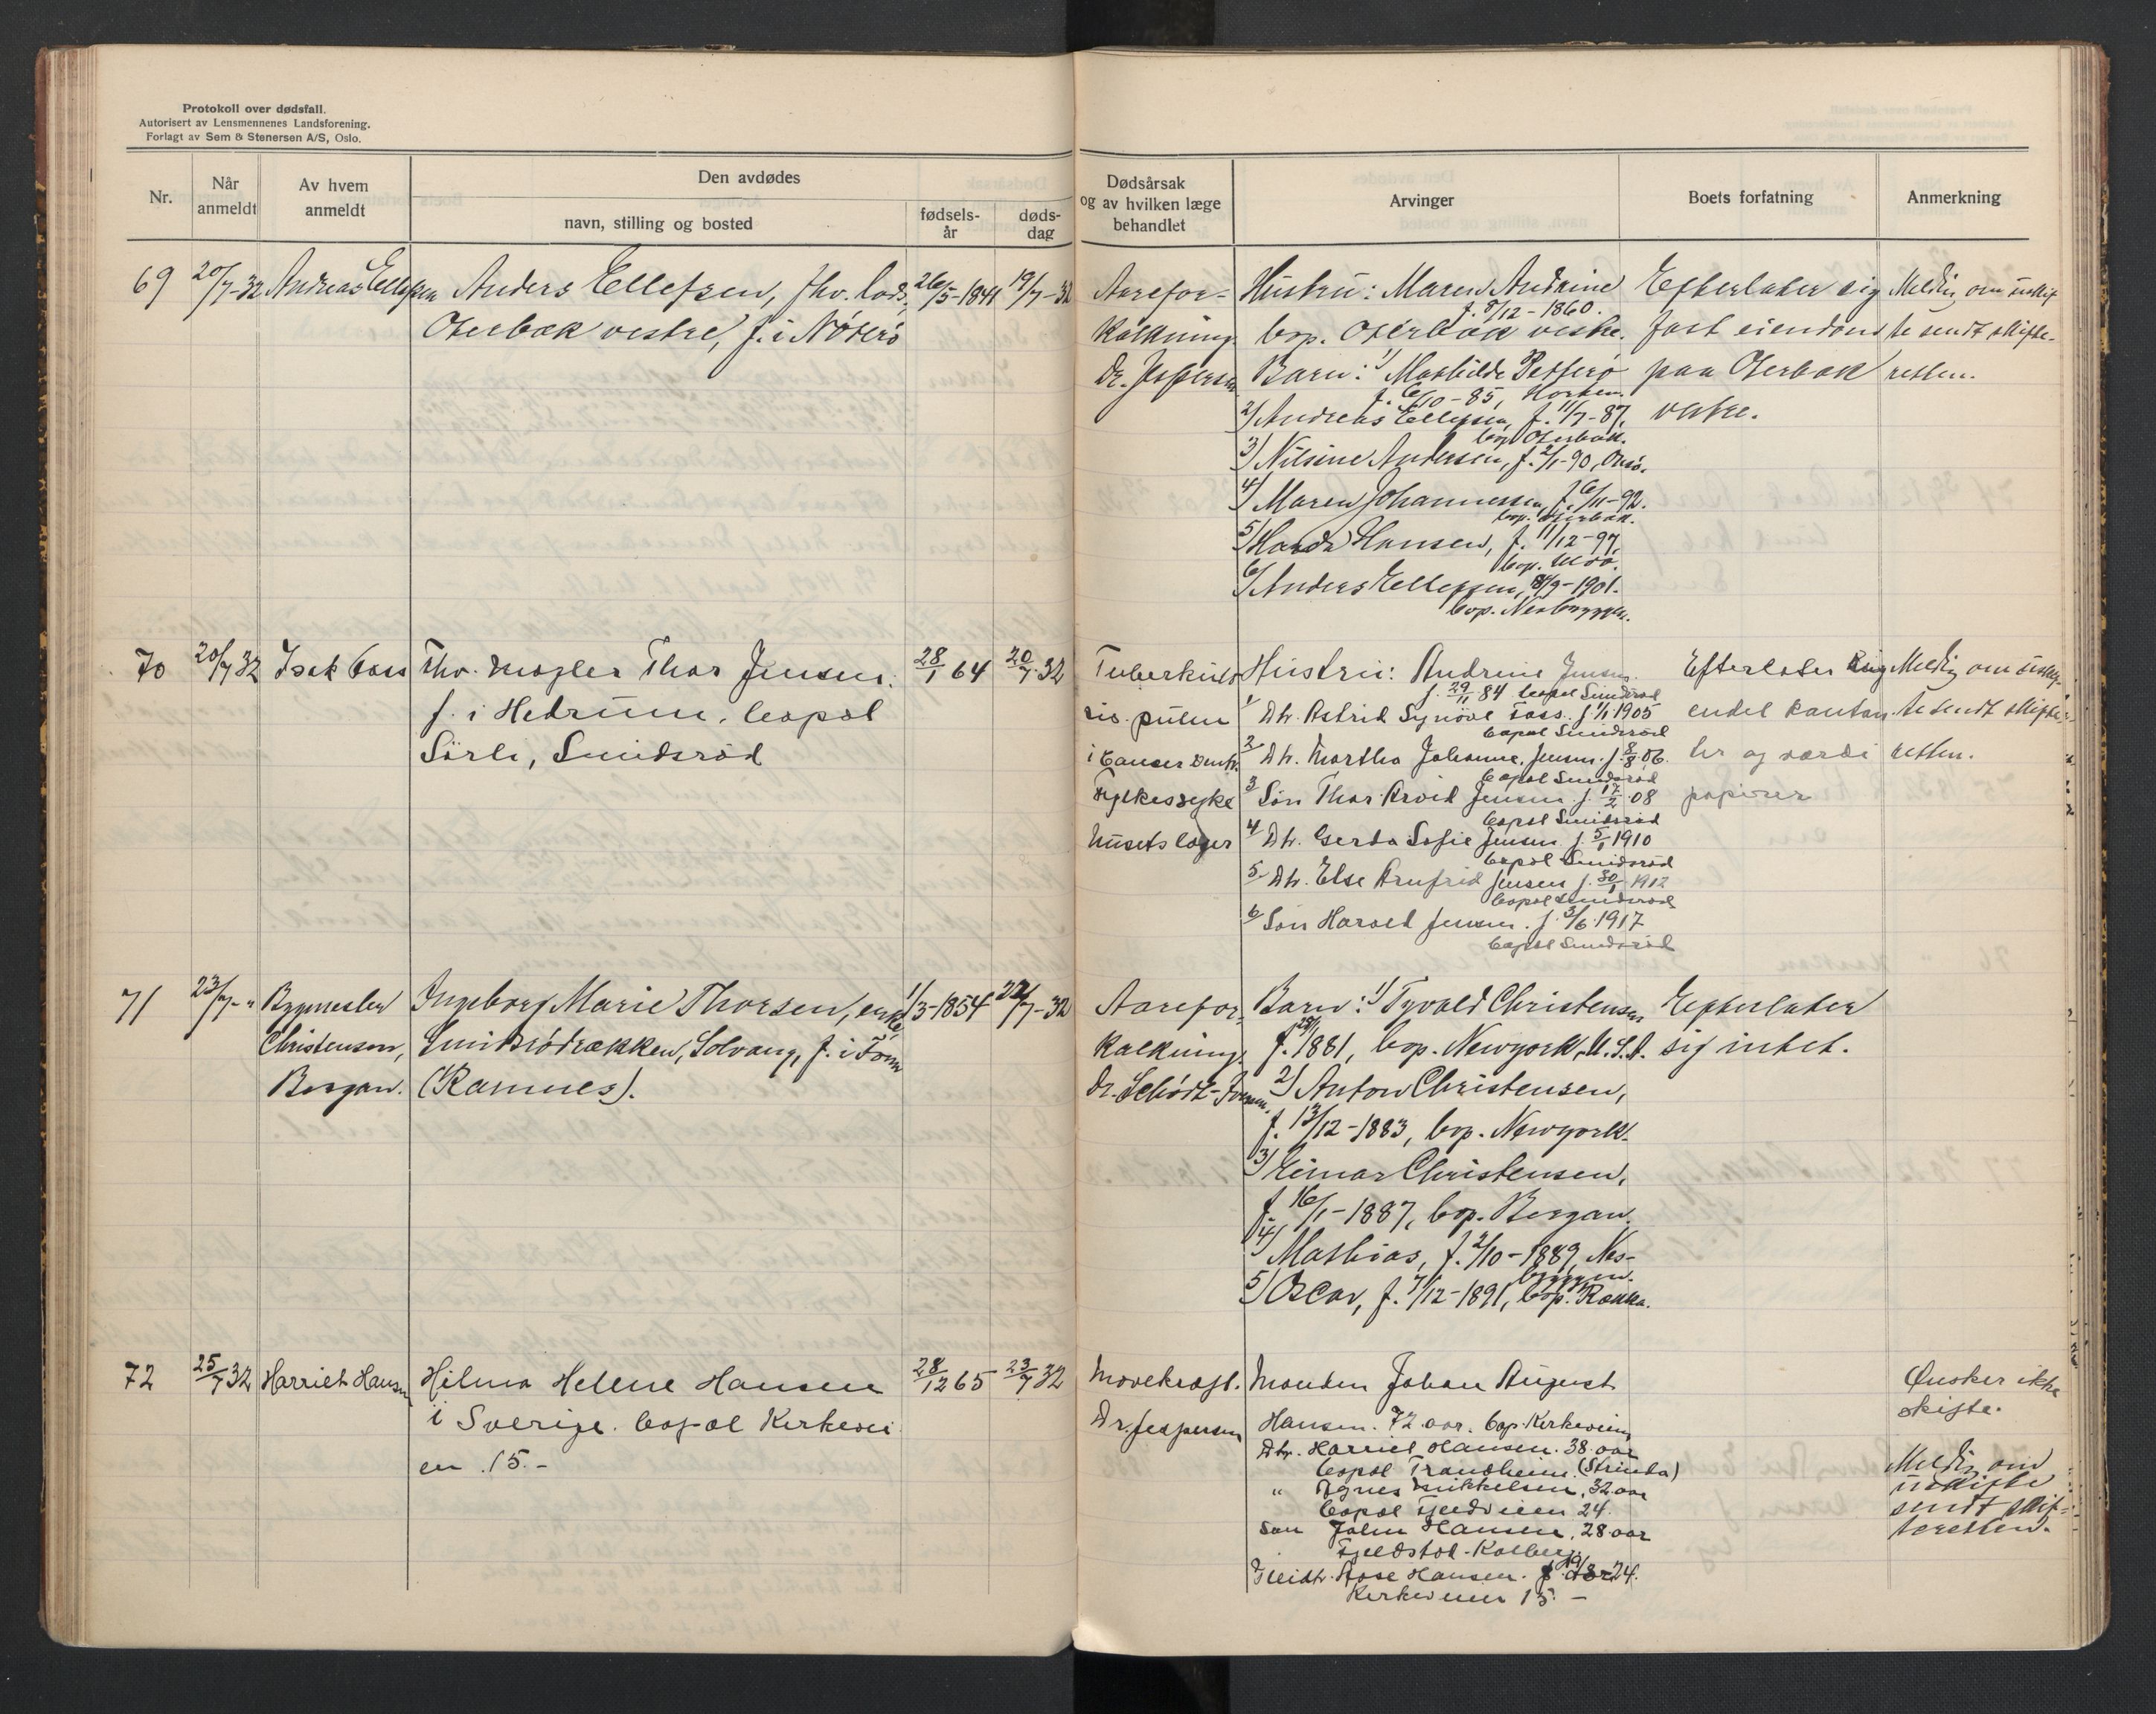 Protokoll over dødsfall.
Autorisert av Lensmennenes Landsforening.
Forlagt av Sem & Stenersen A/S, Oslo.
Nr.
Når
anmeldt
Av hvem
anmeldt
Den avdødes
navn, stilling og bosted
fødsels-
år
døds-
dag
Dødsårsak
og av hvilken læge
behandlet
Arvinger
Boets forfatning
Anmerkning
69
20/7-32
Andreas Ellefsen
Anders Ellefsen, fhv. lods,
Oterbæk vestre, f. i Nøterø
26/5-1841
19/7-32
Aarefor-
kalkning.
Dr. Jespersen
Hustru: Maren Andrine
f. 8/12-1860.
bop. Oterbæk vestre.
Barn: 1/ Mathilde Petterø
f. 6/10-85, Horten.
2/ Andreas Ellefsen, f. 11/7-87,
bop. Oterbæk.
3/ Nilsine Andersen, f. 2/1-90, Onsø.
4/ Maren Johannessen f. 6/11-92.
bop. Oterbæk.
5/ Hansen, f. 11/12-97,
bop. Moo.
6/ Anders Ellefsen, 8/9-1901.
bop. Nesbryggen.
Efterlater sig
fast eiendom
paa Oterbæk
vestre.
Meldin om uskif
te sendt skifte-
retten.
70
20/7 32
Isak Foss
Fhv. megler Thor Jensen.
f. i Hedrum. bopæl
Sørli, Smidsrød
28/1 64
20/7-32
Tuberkulo
sis pulm
i
Fylkessyke
husets læger
Hustru: Andrine Jensen
f. 29/11 84 bopæl Smidsrød
1 Dtr. Astrid Synøve Foss. f 1/1 1905
bopæl Smidsrød
2 Dtr. Martha Johanne Jensen. f. 8/8 06.
bopæl Smidsrød
3 Søn Thor Arvid Jensen f. 17/2 08
bopæl Smidsrød
4 Dtr. Gerda Sofie Jensen f. 5/1 1910
bopæl Smidsrød
5 Dtr. Else Arnfrid Jensen f. 30/1 1912
bopæl Smidsrød
6 Søn Harold Jensen. f. 3/6 1917
bopæl Smidsrød
Efterlater sig
endel kontan-
ter og værdi
papirer
Meldin om uskif-
te sendt skifte-
retten.
71
23/7-"
Bygmester
Christensen,
Bergan.
Ingeborg Marie Thorsen, enke,
Smidsrødrækken, Solvang, f. i Fon
(Ramnes).
1/3-1854
22/7-32
Aarefor-
kalkning.
Barn: 1/ Tyvald Christensen
f. 28/1 1881, bop. Newyork, U.S.A.
2/ Anton Christensen,
f. 13/12-1883, bop. Newyork.
3/ Einar Christensen,
f. 16/1-1887, bop. Bergan.
4/ Mathias, f. 2/10-1889, Nes-
bryggen.
5/ Oscar, f. 7/12-1891, bop. Rækka.
Efterlater
sig intet.
72
25/7 32
Harriet Hansen
Hilma Helene Hansen
i Sverige. bopæl Kirkevei
en 15.-
28/12 65
23/7 32
Mavekræft.
Dr. Jespersen
Manden Johan August
Hansen. 72 aar. bop. Kirkeveien
Dtr. Harriet Hansen. 38 aar
bopæl Trondheim. (Strinda)
" Agnes Mikkelsen, 32 aar
bopæl Fjeldveien 24.
Søn John Hansen, 28 aar
Fjeldstad-Kolberg.
Pleidtr. Aase Hansen. 24.
Kirkeveien 15.-
Ønsker ikke
skifte.
Meldin om
uskifte
sendt skif-
teretten.